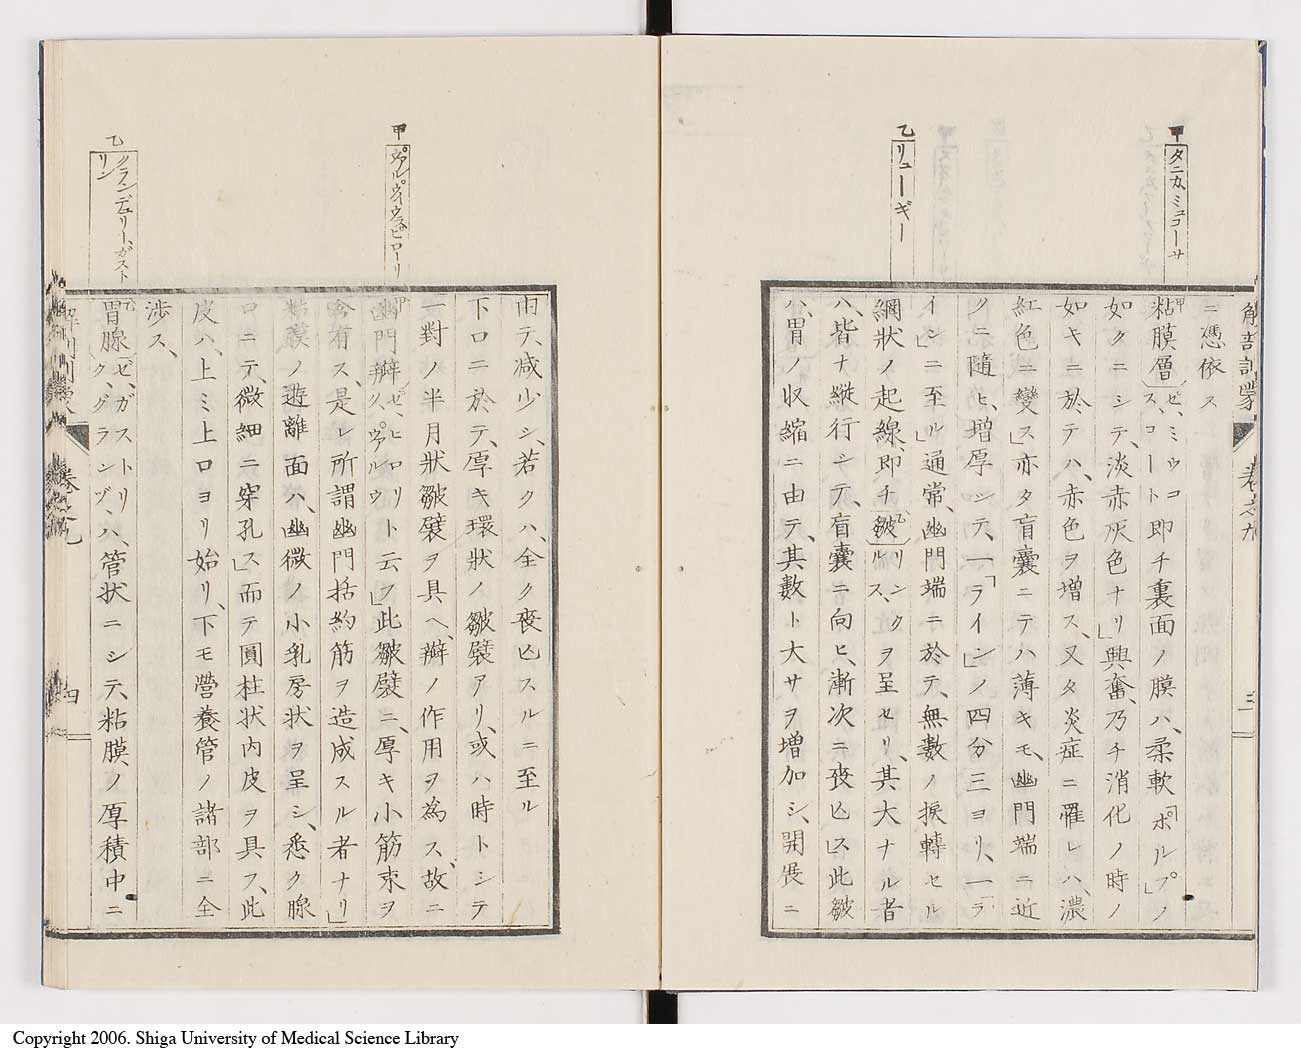 甲 タニカ、ミュコーサ
乙 リューギー
解剖訓蒙 卷之九 三
ニ憑依ス
甲粘膜層〔ゼ、ミウコス、コート〕即チ裏面ノ膜ハ、柔軟「ポルプ」ノ
如クニシテ、淡赤灰色ナリ」興奮、乃チ消化ノ時ノ
如キニ於テハ、赤色ヲ増ス、又タ炎症ニ罹レハ、濃
紅色ニ變ス」亦タ盲囊ニテハ薄キモ、幽門端ニ近
クニ隨ヒ、増厚シテ、一「ライン」ノ四分三ヨリ、一「ラ
イン」ニ至ル」通常、幽門端ニ於テ、無數ノ捩轉セル
綱狀ノ起線、即チ乙皺〔リンクルス〕ヲ呈セリ、其大ナル者
ハ、皆ナ縱行シテ、盲囊ニ向ヒ、漸次ニ喪亡ス」此皺
ハ、胃ノ收縮ニ由テ、其數ト大サヲ増加シ、開展ニ
甲 ヴァルヴィウラ、ピローリ
乙 グランデュリー、ガストリン
由テ、减少シ、若クハ、全ク喪亡スルニ至ル
下口ニ於テ、厚キ環狀ノ皺襞アリ、或ハ時トシテ
一對ノ半月狀皺襞ヲ具ヘ、辧ノ作用ヲ為ス、故ニ
甲幽門辧〔ゼ、ピロリック、ヴァルウ〕ト云フ」此皺襞ニ、厚キ小筋束ヲ
含有ス、是レ所謂幽門括約筋ヲ造成スル者ナリ」
粘膜ノ遊離面ハ、幽微ノ小乳房狀ヲ呈シ、悉ク腺
口ニテ、微細ニ穿孔ス」而テ圓柱狀内皮ヲ具フ、此
皮ハ、上ミ上口ヨリ始リ、下モ營養管ノ諸部ニ全
涉ス、
乙胃腺〔ゼ、ガストリック、グランヅ〕ハ、管状ニシテ、粘膜ノ厚積中ニ
卷之九 四
Copyright 2006. Shiga University of Medical Science Library